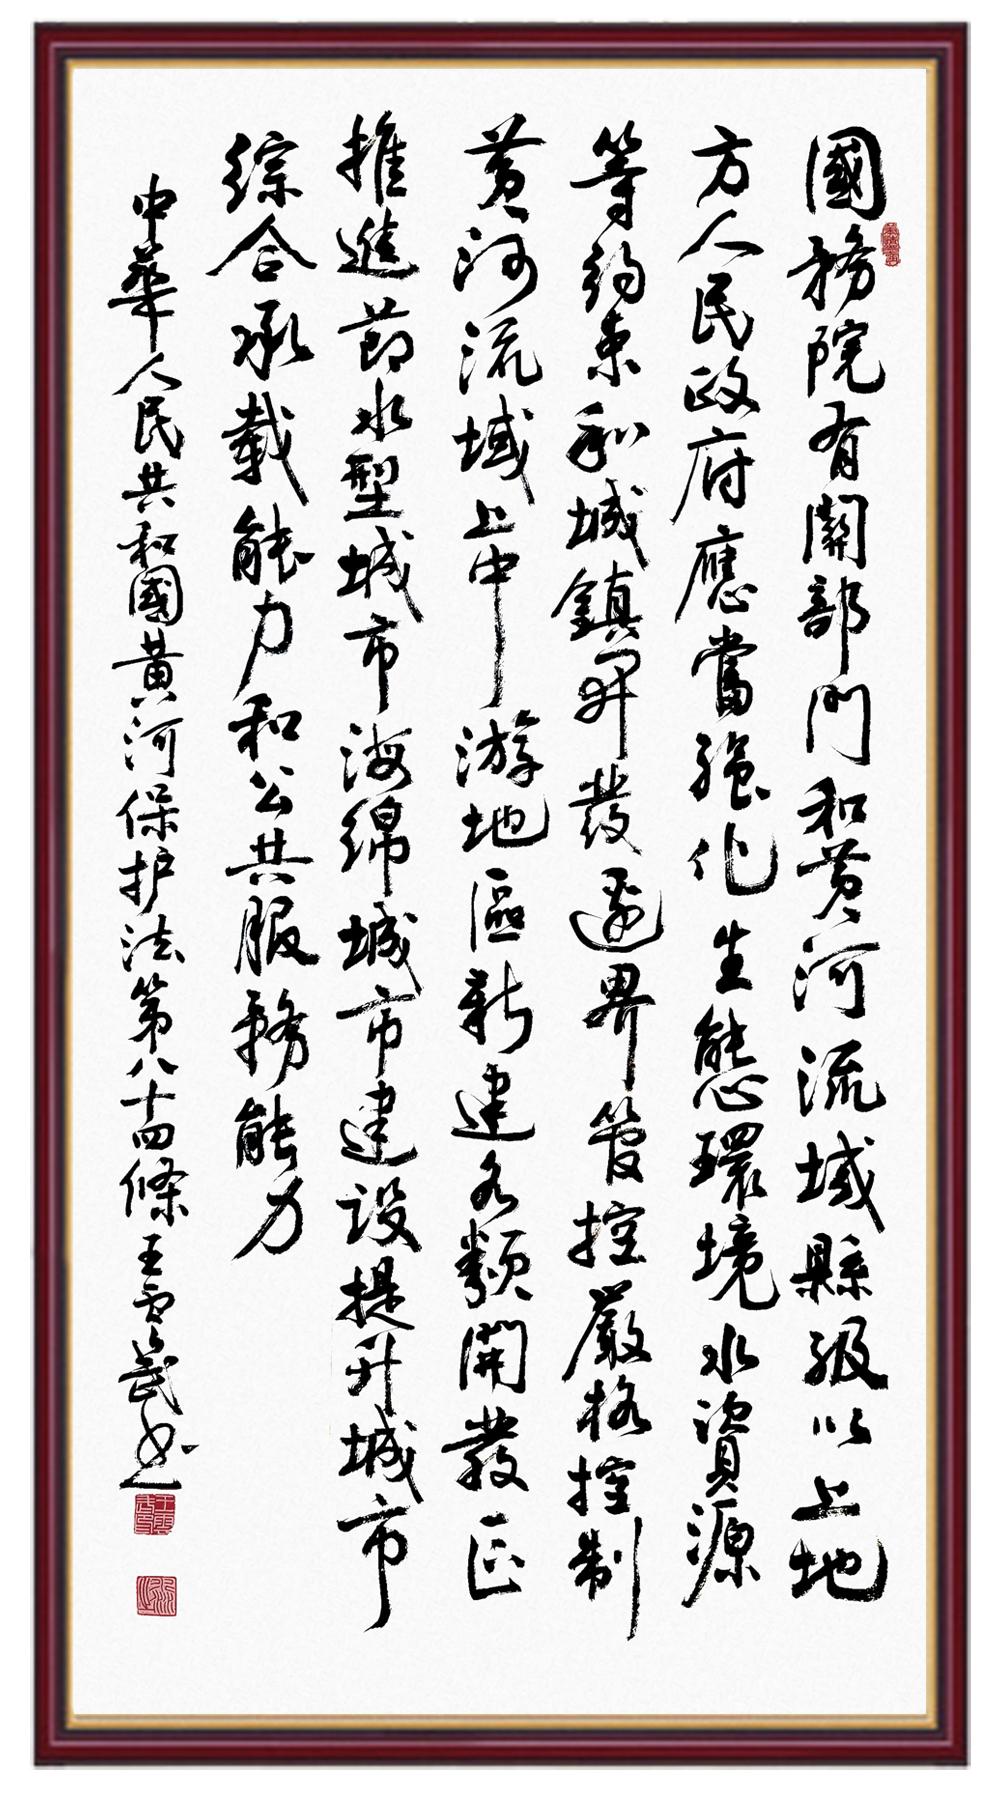 國務院有關部門和黄河流域縣級以上地
方人民政府應當強化生態環境水資源
等約束和城鎮開發邊界管控嚴格控制
黄河流域上中游地區新建各類開發區
推進節水型城市海綿城市建设提升城市
綜合承載能力和公共服務能力
中華人民共和國黄河保护法第八十四條王雪武书